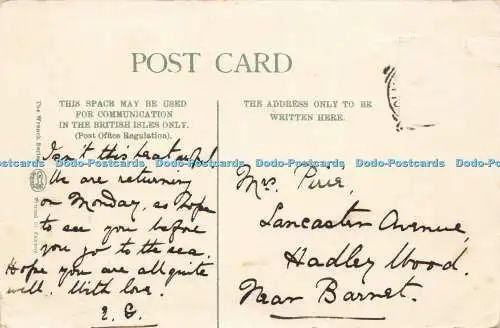 POST CARD
THIS SPACE MAY BE USED
FOR COMMUNICATION
IN THE BRITISH ISLES ONLY.
(Post Office Regulation).
Isn't this heat awful
We are returning
on Monday, so hope
to see you before
you go to the sea.
Hope you are all quite
well. With love.
E. G.
THE ADDRESS ONLY TO BE
WRITTEN HERE.
Mrs. Pirie,
Lancaster Avenue,
Hadley Wood.
Near Barnet.
The Wrench Series
Dodo-Postcards Dodo-Postcards Dodo-Postcards Dodo-Postcards Dodo-Postcards